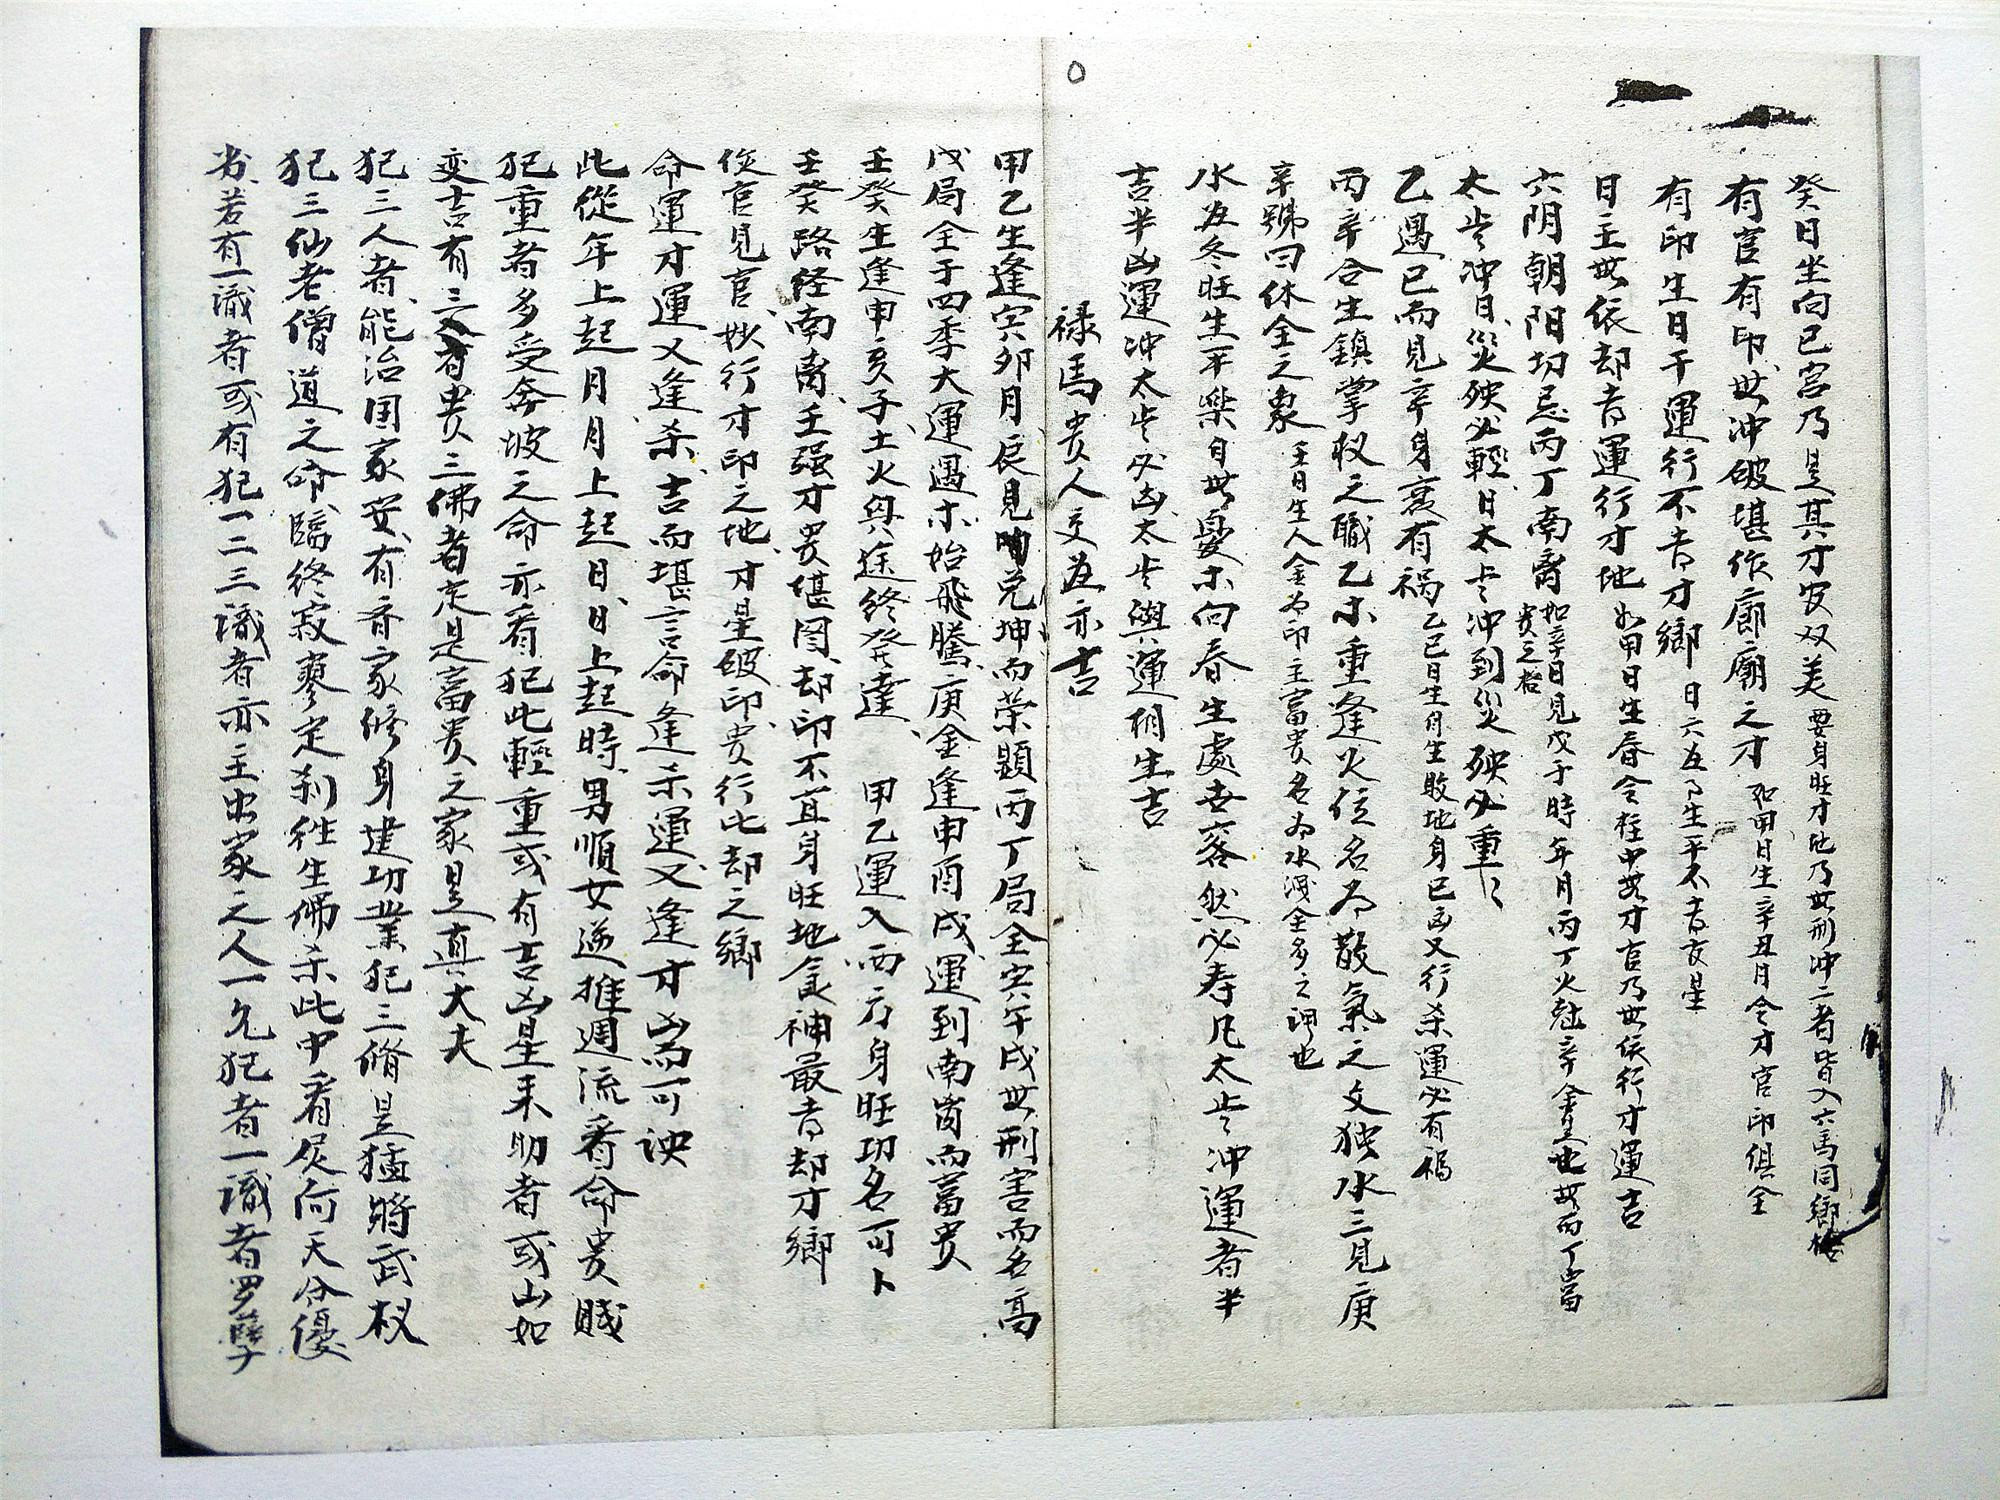 癸日坐向巳宮乃是其才官双美要身旺才地乃無刑冲二者皆入六馬同鄉格
有官有印無冲破堪作廊廟之才如甲日生辛丑月令才官印俱全
有印生日干運行不吉才鄉日六五月生平不吉
日主無依却喜運行才地如甲日生春令柱中無才官乃無依行才運吉
六阴朝阳切忌丙丁南离如辛日見戊子時年月丙丁火尅辛金是也無丙丁當貴之格
太歩冲日災殃必輕日太歩冲到災殃必重
乙遇巳而見辛身衰有禍乙巳日生月生敗地身已凶又行杀運必有禍
丙辛合生鎮掌权之職乙木重逢火位名为散氣之文独水三見庚
辛號曰休全之象壬日生人金为印主富贵名为水浅金多之謂也
水为冬旺生平樂自無憂木向春生處世安然必寿凡太歩冲運者半
吉半凶運冲太歩必凶太歩與運相生吉
禄馬贵人交並亦吉
甲乙生逢寅卯月辰見兑坤而荣顕丙丁局全寅午戌無刑害而名高
戊局全于四季大運遇木始飛騰庚金逢申酉戌運到南离而富贵
壬癸生逢申亥子土火與运終發達甲乙運入西方身旺功名可卜
壬癸路経南离壬强才贵堪图却印不宜身旺地食神最喜却才鄉
傷官見官妙行才印之地才星破印贵行比却之鄉
命運才運又逢杀吉而堪言命逢杀運又逢才凶而可诀
此從年上起月月上起日日上起時男順女逆推週流看命贵賎
犯重者多受奔坡之命亦看犯此輕重或有吉凶星来助者或凶如
变吉有三者贵三佛者定是富贵之家是真大夫
犯三人者能治国家安有香家修身建功業犯三脩是猛將武权
犯三仙老僧道之命臨終寂寥定到往生佛杀此中看仄何天合優
劣若有一識者或有犯一二三識者亦主出家之人一凡犯者一識者罗孽